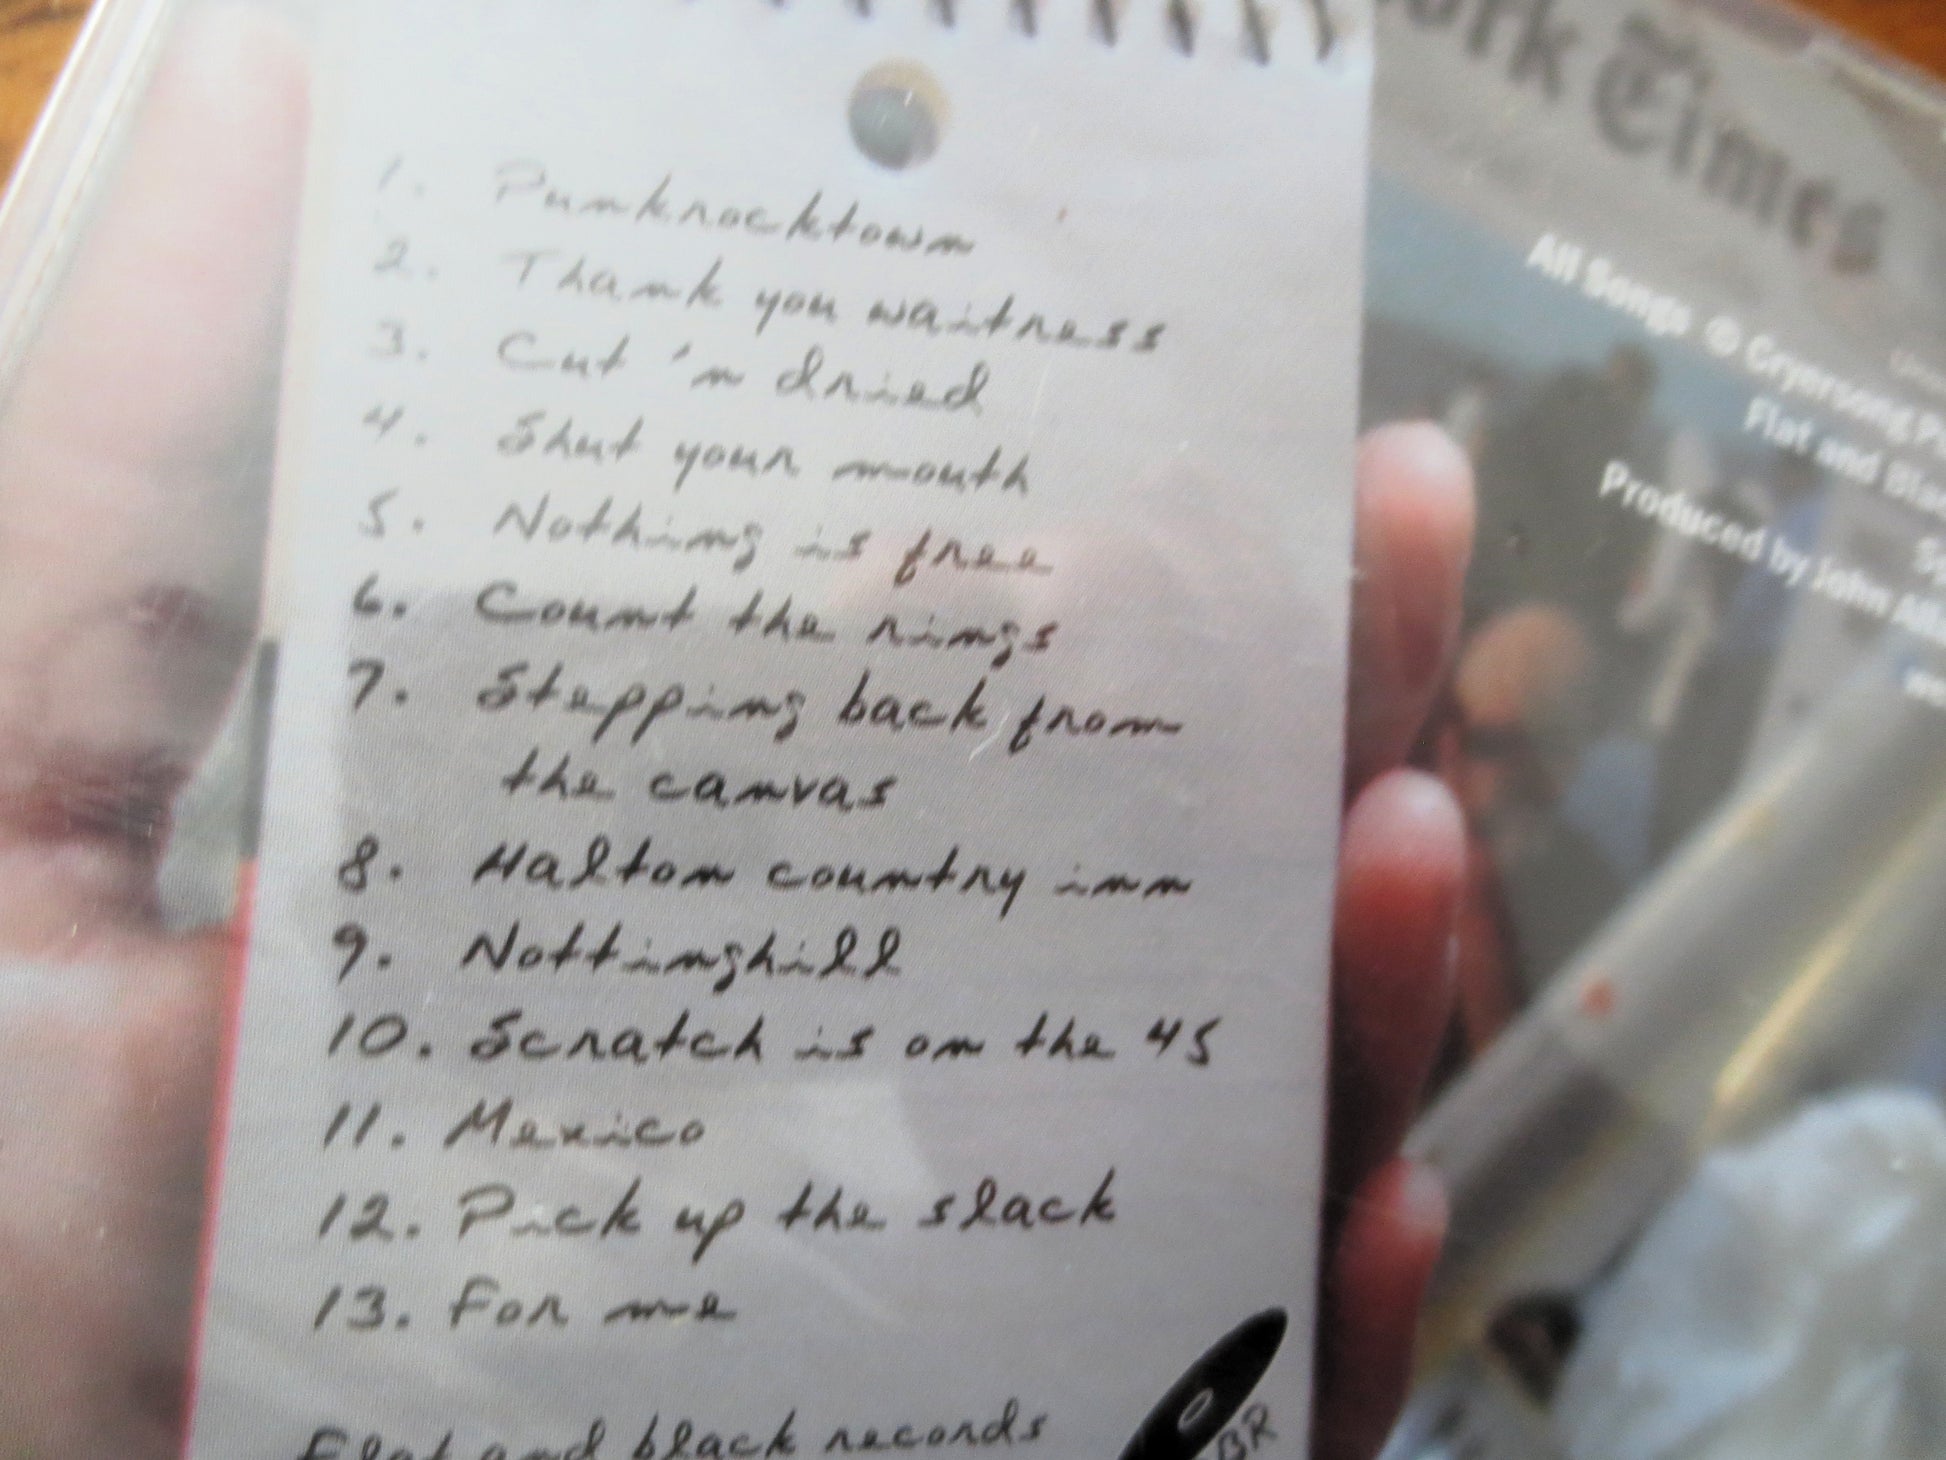 Times
All Songs © Cryersong
Flat and
Produced by John
1. Punkrocktown
2. Thank you waitress
3. Cut 'n dried
4. Shut your mouth
5. Nothing is free
6. Count the rings
7. Stepping back from
the canvas
8. Haltom country inn
9. Nottinghill
10. Scratch is on the 45
11. Mexico
12. Pick up the slack
13. For me
Flat and black records
BR